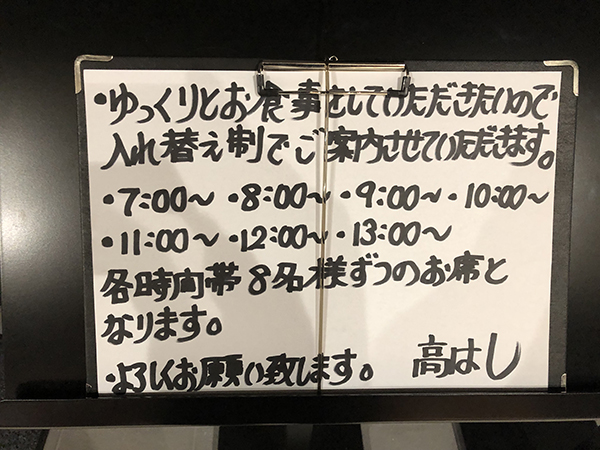 ・ゆっくりとお食事をしていただきたいので
入れ替え制でご案内させていただきます。
・7:00〜 ・8:00〜 ・9:00〜 ・10:00〜
・11:00〜 ・12:00〜 ・13:00〜
各時間帯8名様ずつのお席と
なります。
・よろしくお願い致します。 高はし